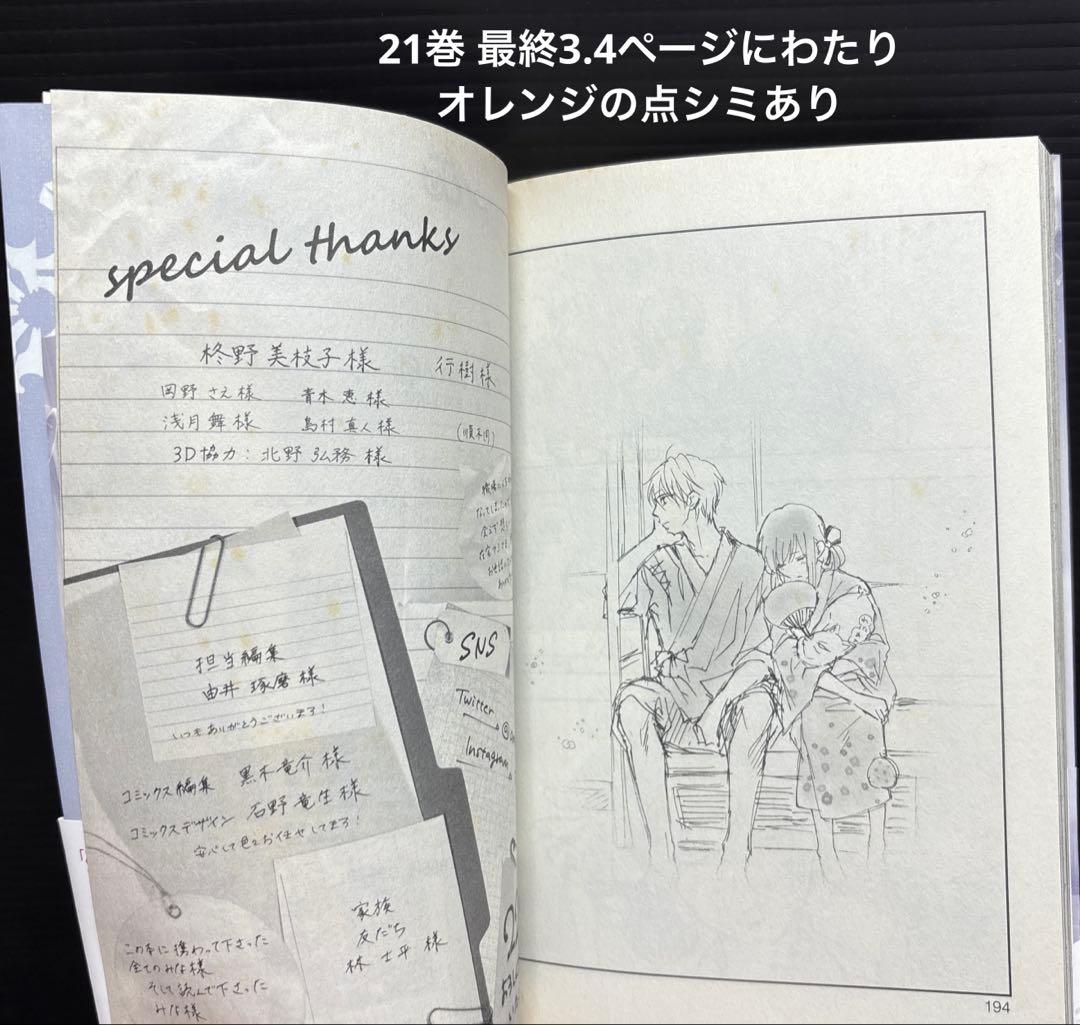 21巻 最終3.4ページにわたり
オレンジの点シミあり
special thanks
柊野 美枝子様 行樹様
岡野 さえ様 青木 恵様
浅月 舞様 島村 真人様 (順不同)
3D協力: 北野 弘務 様
SNS
Twitter
Instagram
担当編集
由井 琢磨 様
いつもありがとうございます!
コミックス編集 黒木竜介 様
コミックスデザイン 石野竜生様
安心して色々お任せしてます!
家族
友だち
林 士平 様
この本に携わって下さった
全てのみな様
そして読んで下さった
みな様
194